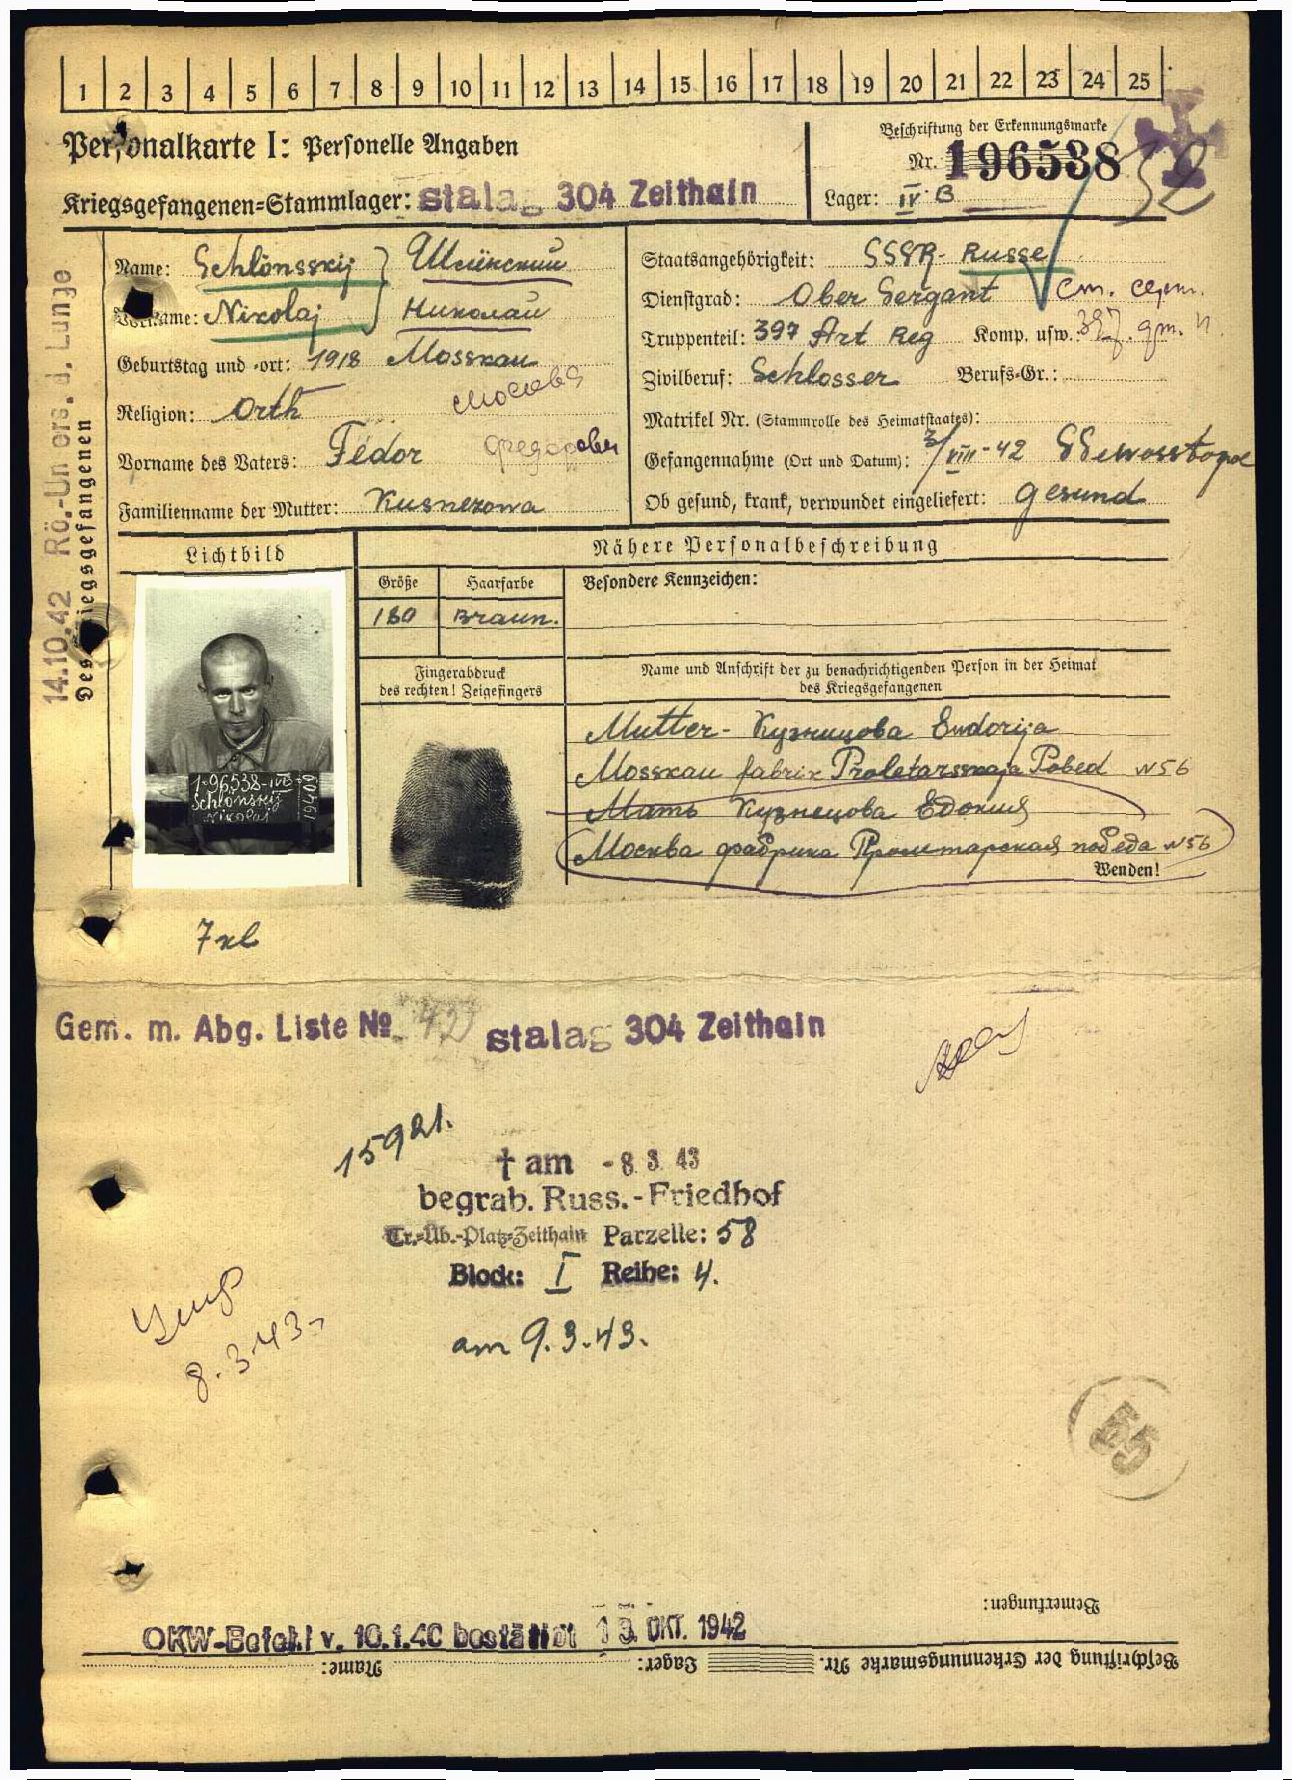 1 2 3 4 5 6 7 8 9 10 11 12 13 14 15 16 17 18 19 20 21 22 23 24 25
Personalkarte I: Personelle Angaben
Kriegsgefangenen=Stammlager: Stalag 304 Zeithain
Beschriftung der Erkennungsmarke
Nr. 196538
Lager: IV B
52
14.10.42 Rö.-Un ers. d. Lunge
Des Kriegsgefangenen
Name: Schlönsskij Шлёнский
Vorname: Nikolaj Николай
Geburtstag und =ort: 1918 Mosskau
Москва
Religion: Orth
Vorname des Vaters: Fédor Федорович
Familienname der Mutter: Kusnezowa
Staatsangehörigkeit: SSSR- Russe
Dienstgrad: Ober Sergant Ст. серж.
Truppenteil: 397 Art Reg Komp. usw.: 397.
Zivilberuf: Schlosser Berufs=Gr.:
Matrikel Nr. (Stammrolle des Heimatstaates):
Gefangennahme (Ort und Datum): 3/VIII-42 SSewosstopol
Ob gesund, krank, verwundet eingeliefert: gesund
Lichtbild
Nähere Personalbeschreibung
Größe Haarfarbe Besondere Kennzeichen:
180 Braun.
Fingerabdruck
des rechten! Zeigefingers
Name und Anschrift der zu benachrichtigenden Person in der Heimat
des Kriegsgefangenen
Mutter- Кузницова Ewdorija
Mosskau fabrik Proletarsskaja Pobed N56
Мать Кузнецова Едокия
Москва фабрика Пролетарская победа N56
Wenden!
196538-IVB
Schlonskij
Nikolaj
19409
Gem. m. Abg. Liste № 42 Stalag 304 Zeithain
15921.
† am - 8. 3. 43
begrab. Russ.-Friedhof
Tr.=Üb.=Platz=Zeithain Parzelle: 58
Block: I Reihe: 4.
am 9.3.43.
Умер
8.3.43.
55
Bemerkungen:
OKW-Befehl v. 10.1.40 bestätigt 13. OKT. 1942
Beschriftung der Erkennungsmarke Nr. Lager: Name: